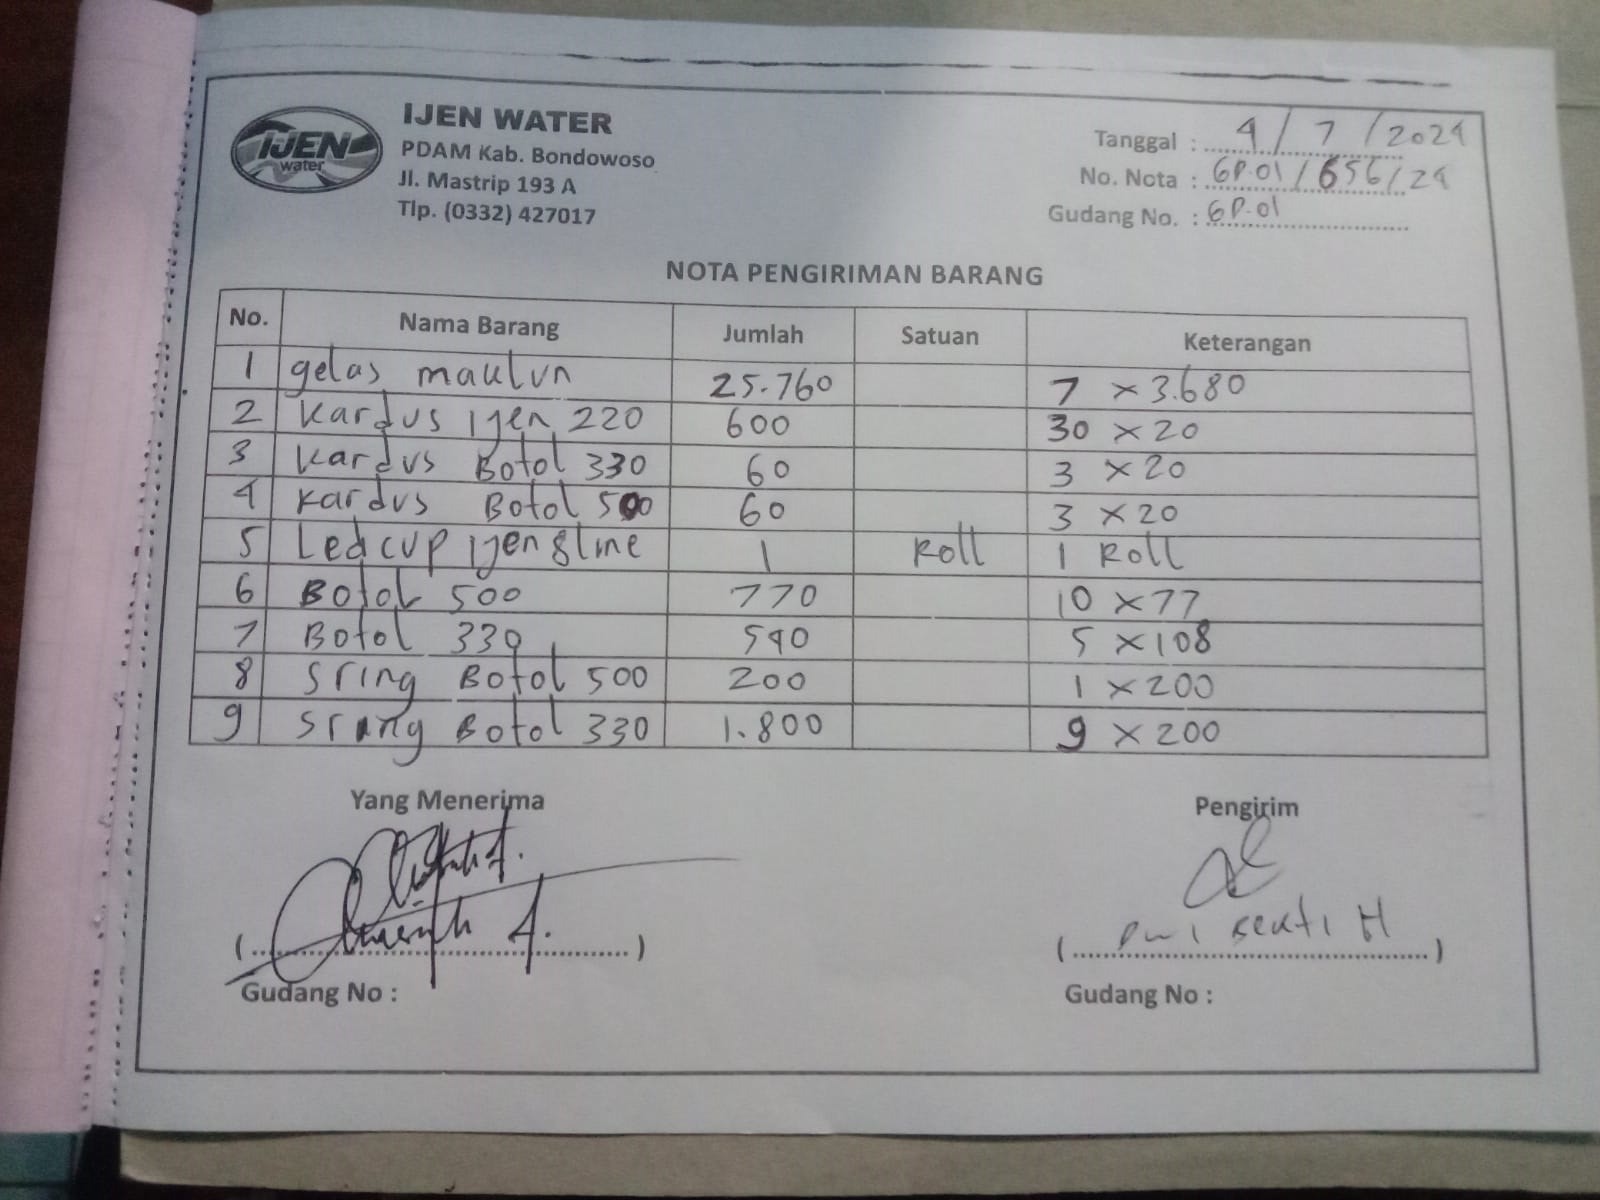 IJEN
water
IJEN WATER
PDAM Kab. Bondowoso
Jl. Mastrip 193 A
Tlp. (0332) 427017
Tanggal : 4 / 7 / 2024
No. Nota : GP.01 / 656 / 24
Gudang No. : GP.01
NOTA PENGIRIMAN BARANG
No. Nama Barang Jumlah Satuan Keterangan
1 gelas maulun 25.760 7 x 3.680
2 Kardus ijen 220 600 30 x 20
3 Kardus Botol 330 60 3 x 20
4 Kardus Botol 500 60 3 x 20
5 Ledcup ijen 8 line 1 Roll 1 Roll
6 Botol 500 770 10 x 77
7 Botol 330 540 5 x 108
8 Sring Botol 500 200 1 x 200
9 Sring Botol 330 1.800 9 x 200
Yang Menerima Pengirim
( ) ( H )
Gudang No : Gudang No :